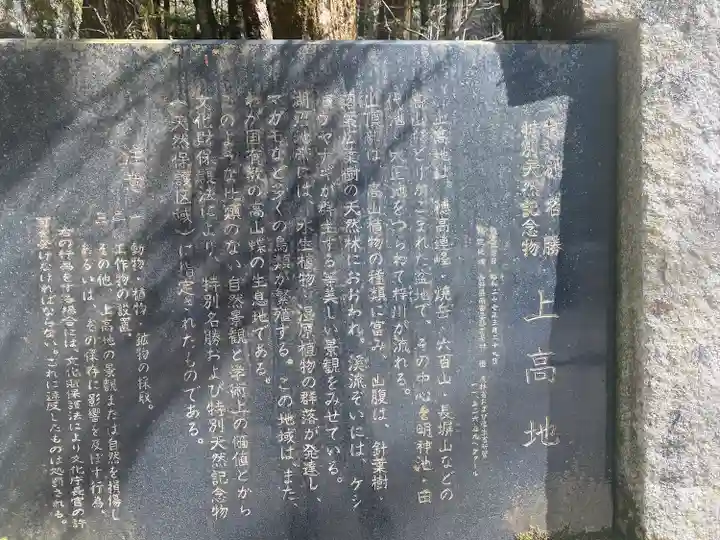 特別名勝
特別天然記念物
上高地
上高地は、穂高連峰・焼岳・六百山・長塀山などの
高山にとりかこまれた盆地で、その中心を明神池・田
代池・大正池をつらねて梓川が流れる。
山頂部は、高山植物の種類に富み、山腹は、針葉樹・
闊葉樹の天然林におおわれ、渓流ぞいには、ケシ
ョウヤナギが群生する等美しい景観をみせている。
湖沼地域には、水生植物・湿原植物の群落が発達し、
マガモなど多くの鳥類が繁殖する。この地域は、また、
わが国有数の高山蝶の生息地である。
このような比類のない自然景観と学術上の価値とから
文化財保護法により、特別名勝および特別天然記念物
(天然保護区域)に指定されたものである。
注意
一 動物・植物・鉱物の採取。
二 工作物の設置。
三 その他、上高地の景観または自然を損傷し
あるいは、その保存に影響を及ぼす行為、
右の行為をする場合には、文化財保護法により文化庁長官の許
可を受けなければならない。これに違反したものは処罰される。